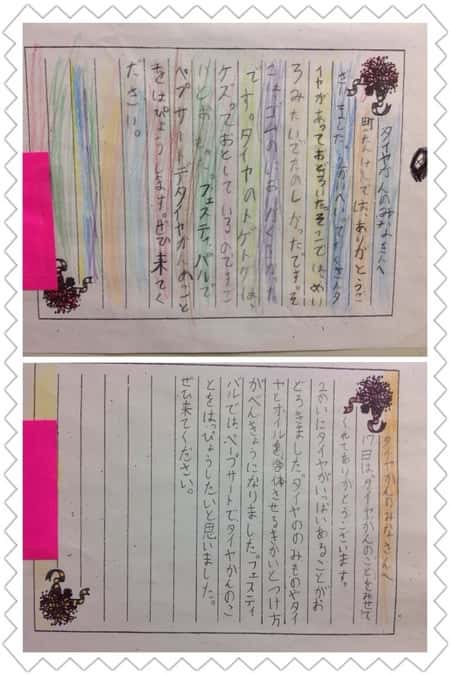 タイヤかんのみなさんへ
町たんけんでは、ありがとうご
ざいました。2かいへいってたくさんタ
イヤがあっておどろいた。そこでは、めい
ろみたいでたのしかったです。そ
こはゴムのにおいがくさかった
です。タイヤのトゲトゲは、
ケズっておとしているのですご
いとおもった。フェスティバルで
ペプサートデタイヤかんのこと
をはぴょうします。ぜひ来てく
ださい。
タイヤかんのみなさんへ
17日は、タイヤかんのことをみせて
くれてありがとうございます。
2かいにタイヤがいっぱいあることがお
どろきました。タイヤののみものやタイ
ヤとホイルを合体させるきかいとつけ方
がべんきょうになりました。フェスティ
バルでは、ペープサートで、タイヤかんのこ
とをはっぴょうしたいと思いました。
ぜひ来てください。